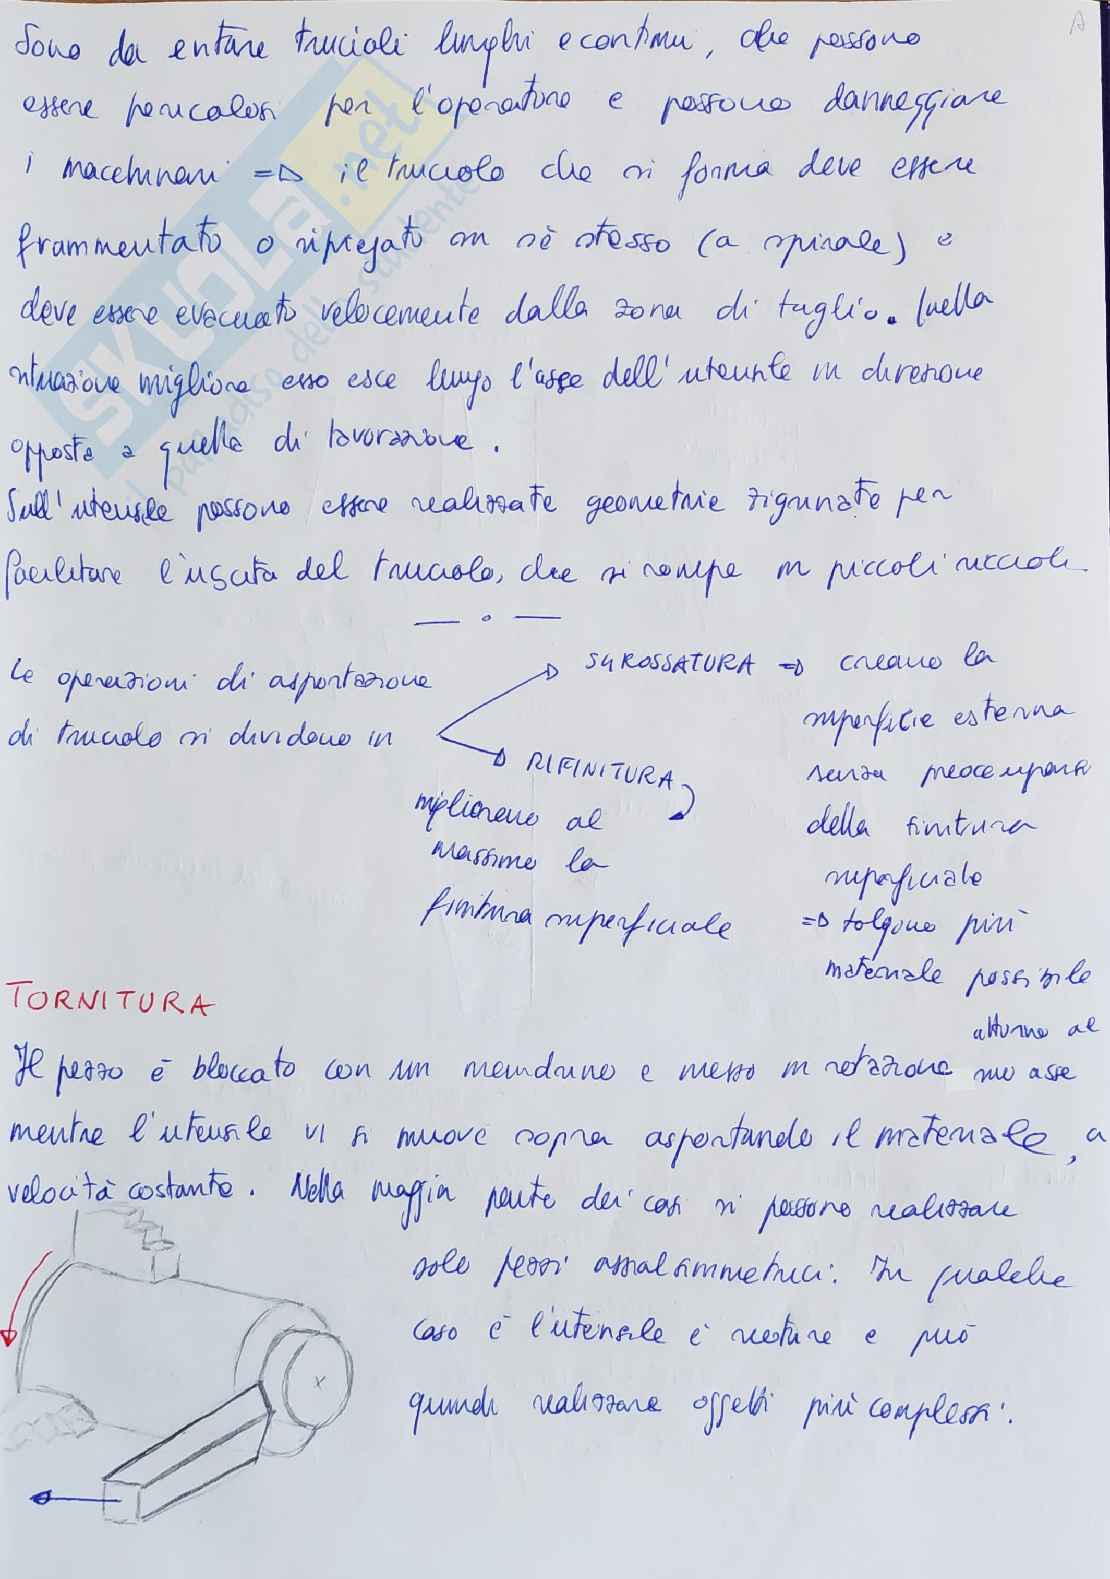 A
Sono da evitare trucioli lunghi e continui, che possono
essere pericolosi per l'operatore e possono danneggiare
i macchinari => il truciolo che si forma deve essere
frammentato o ripiegato su sè stesso (a spirale) e
deve essere evacuato velocemente dalla zona di taglio. Nella
situazione migliore esso esce lungo l'asse dell'utensile in direzione
opposta a quella di lavorazione.
Sull'utensile possono essere realizzate geometrie zigrinate per
facilitare l'uscita del truciolo, che si rompe in piccoli riccioli.
Le operazioni di asportazione
di truciolo si dividono in
SGROSSATURA => creano la
superficie esterna
senza preoccuparsi
della finitura
superficiale
=> tolgono più
materiale possibile
RIFINITURA
migliorano al
massimo la
finitura superficiale
TORNITURA
Il pezzo è bloccato con un mandrino e messo in rotazione attorno al suo asse
mentre l'utensile vi si muove sopra asportando il materiale, a
velocità costante. Nella maggior parte dei casi si possono realizzare
solo pezzi assialsimmetrici. In qualche
caso è l'utensile è ruotare e può
quindi realizzare oggetti più complessi.
SKUOLA.net
il paradiso dello studente